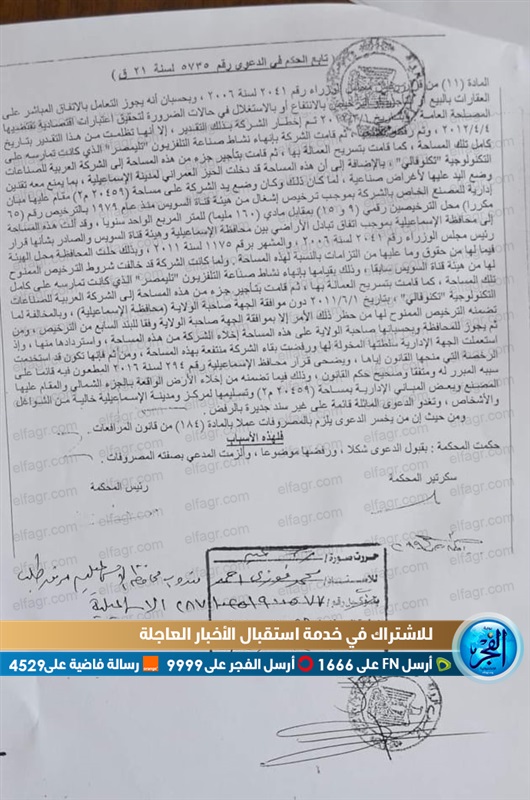 ( تابع الحكم في الدعوي رقم ٥٧٣٥ لسنة ٢١ ق )
المادة (١١) من مجلس الوزراء رقم ٢٠٤١ لسنة ٢٠٠٦، وبحسبان أنه يجوز التعامل بالاتفاق المباشر على
العقارات بالبيع أو الترخيص بالانتفاع أو بالاستغلال في حالات الضرورة لتحقيق اعتبارات اقتصادية تقتضيها
المصلحة العامة إخطار الشركة بذلك التقدير، إلا أنها تظلمت من هذا التقدير بتاريخ
٢٠١٢/٤/٤، وتم رفض ثم قامت الشركة بإنهاء نشاط صناعة التلفزيون "تليمصر" الذي كانت تمارسه على
كامل تلك المساحة، كما قامت بتسريح العمالة بها، ثم قامت بتأجير جزء من هذه المساحة إلى الشركة العربية للصناعات
التكنولوجية "تكنوفالي"، بالإضافة إلى أن هذه المساحة قد دخلت الحيز العمراني لمدينة الإسماعيلية، بما يمنع معه تقنين
وضع اليد عليها لأغراض صناعية، لما كان ذلك وكان وضع يد الشركة على مساحة (٢٠٤٥٩ م٢) مقام عليها مبان
إدارية للمصنع الخاص بالشركة بموجب ترخيص إشغال من هيئة قناة السويس منذ عام ١٩٧٩ بالترخيص رقم (٦٥
مكررا) محل الترخيصين رقمي (٩ و ١٥) بمقابل مادي (١٦٠ مليما) للمتر المربع الواحد سنويا، وقد آلت هذه المساحة
إلى محافظة الإسماعيلية بموجب اتفاق تبادل الأراضي بين محافظة الإسماعيلية وهيئة قناة السويس والصادر بشأنها قرار
رئيس مجلس الوزراء رقم ٢٠٤١ لسنة ٢٠٠٦، والمشهر برقم ١١٧٥ لسنة ٢٠١١، وبذلك حلت المحافظة محل الهيئة
فيما لها من حقوق وما عليها من التزامات بالنسبة لهذه المساحة. ولما كانت الشركة قد خالفت شروط الترخيص الممنوح
لها من هيئة قناة السويس سابقا، وذلك بقيامها بإنهاء نشاط صناعة التلفزيون "تليمصر" الذي كانت تمارسه على كامل
تلك المساحة، كما قامت بتسريح العمالة بها، ثم قامت بتأجير جزء من هذه المساحة إلى الشركة العربية للصناعات
التكنولوجية "تكنوفالي"، بتاريخ ٢٠١١/٦/١ دون موافقة الجهة صاحبة الولاية (محافظة الإسماعيلية)، وبالمخالفة لما
تضمنه الترخيص الممنوح لها من حظر ذلك الأمر إلا بموافقة الجهة صاحبة الولاية وفقا للبند السابع من الترخيص، ومن
ثم يجوز للمحافظة وبحسبانها صاحبة الولاية على هذه المساحة إخلاء الشركة من هذه المساحة، واستردادها منها، وإذ
استعملت الجهة الإدارية سلطتها المخولة لها ورفضت بقاء الشركة منتفعة بهذه المساحة، ومن ثم فإنها تكون قد استخدمت
الرخصة التي منحها القانون إياها، ويضحى قرار محافظ الإسماعيلية رقم ٢٩٤ لسنة ٢٠١٦ المطعون فيه قائما على
سببه المبرر له ومتفقا وصحيح حكم القانون، وذلك فيما تضمنه من إخلاء الأرض الواقعة بالجزء الشمالي والمقام عليها
المصنع وبعض المباني الإدارية بمساحة (٢٠٤٥٩ م٢) وتسليمها لمركز ومدينة الإسماعيلية خالية من الشواغل
والأشخاص، وتغدو الدعوى الماثلة قائمة على غير سند جديرة بالرفض.
ومن حيث إن من يخسر الدعوى يلزم بالمصروفات عملا بالمادة (١٨٤) من قانون المرافعات.
فلهذه الأسباب
حكمت المحكمة: بقبول الدعوى شكلا، ورفضها موضوعا، وألزمت المدعي بصفته المصروفات.
سكرتير المحكمة
رئيس المحكمة
elfagr.com
للاشتراك في خدمة استقبال الأخبار العاجلة
أرسل FN على 1666 أرسل الفجر على 9999 رسالة فاضية على 4529
الفجر